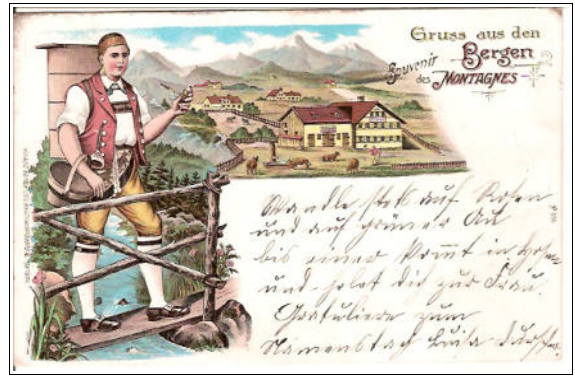 Gruss aus den
Bergen
Souvenir
des MONTAGNES
Wandle stets auf Rosen
und auf grüner Au
bis einer kommt in Hosen
und holet dich zur Frau.
Gratuliere zum
Namenstach Luisa